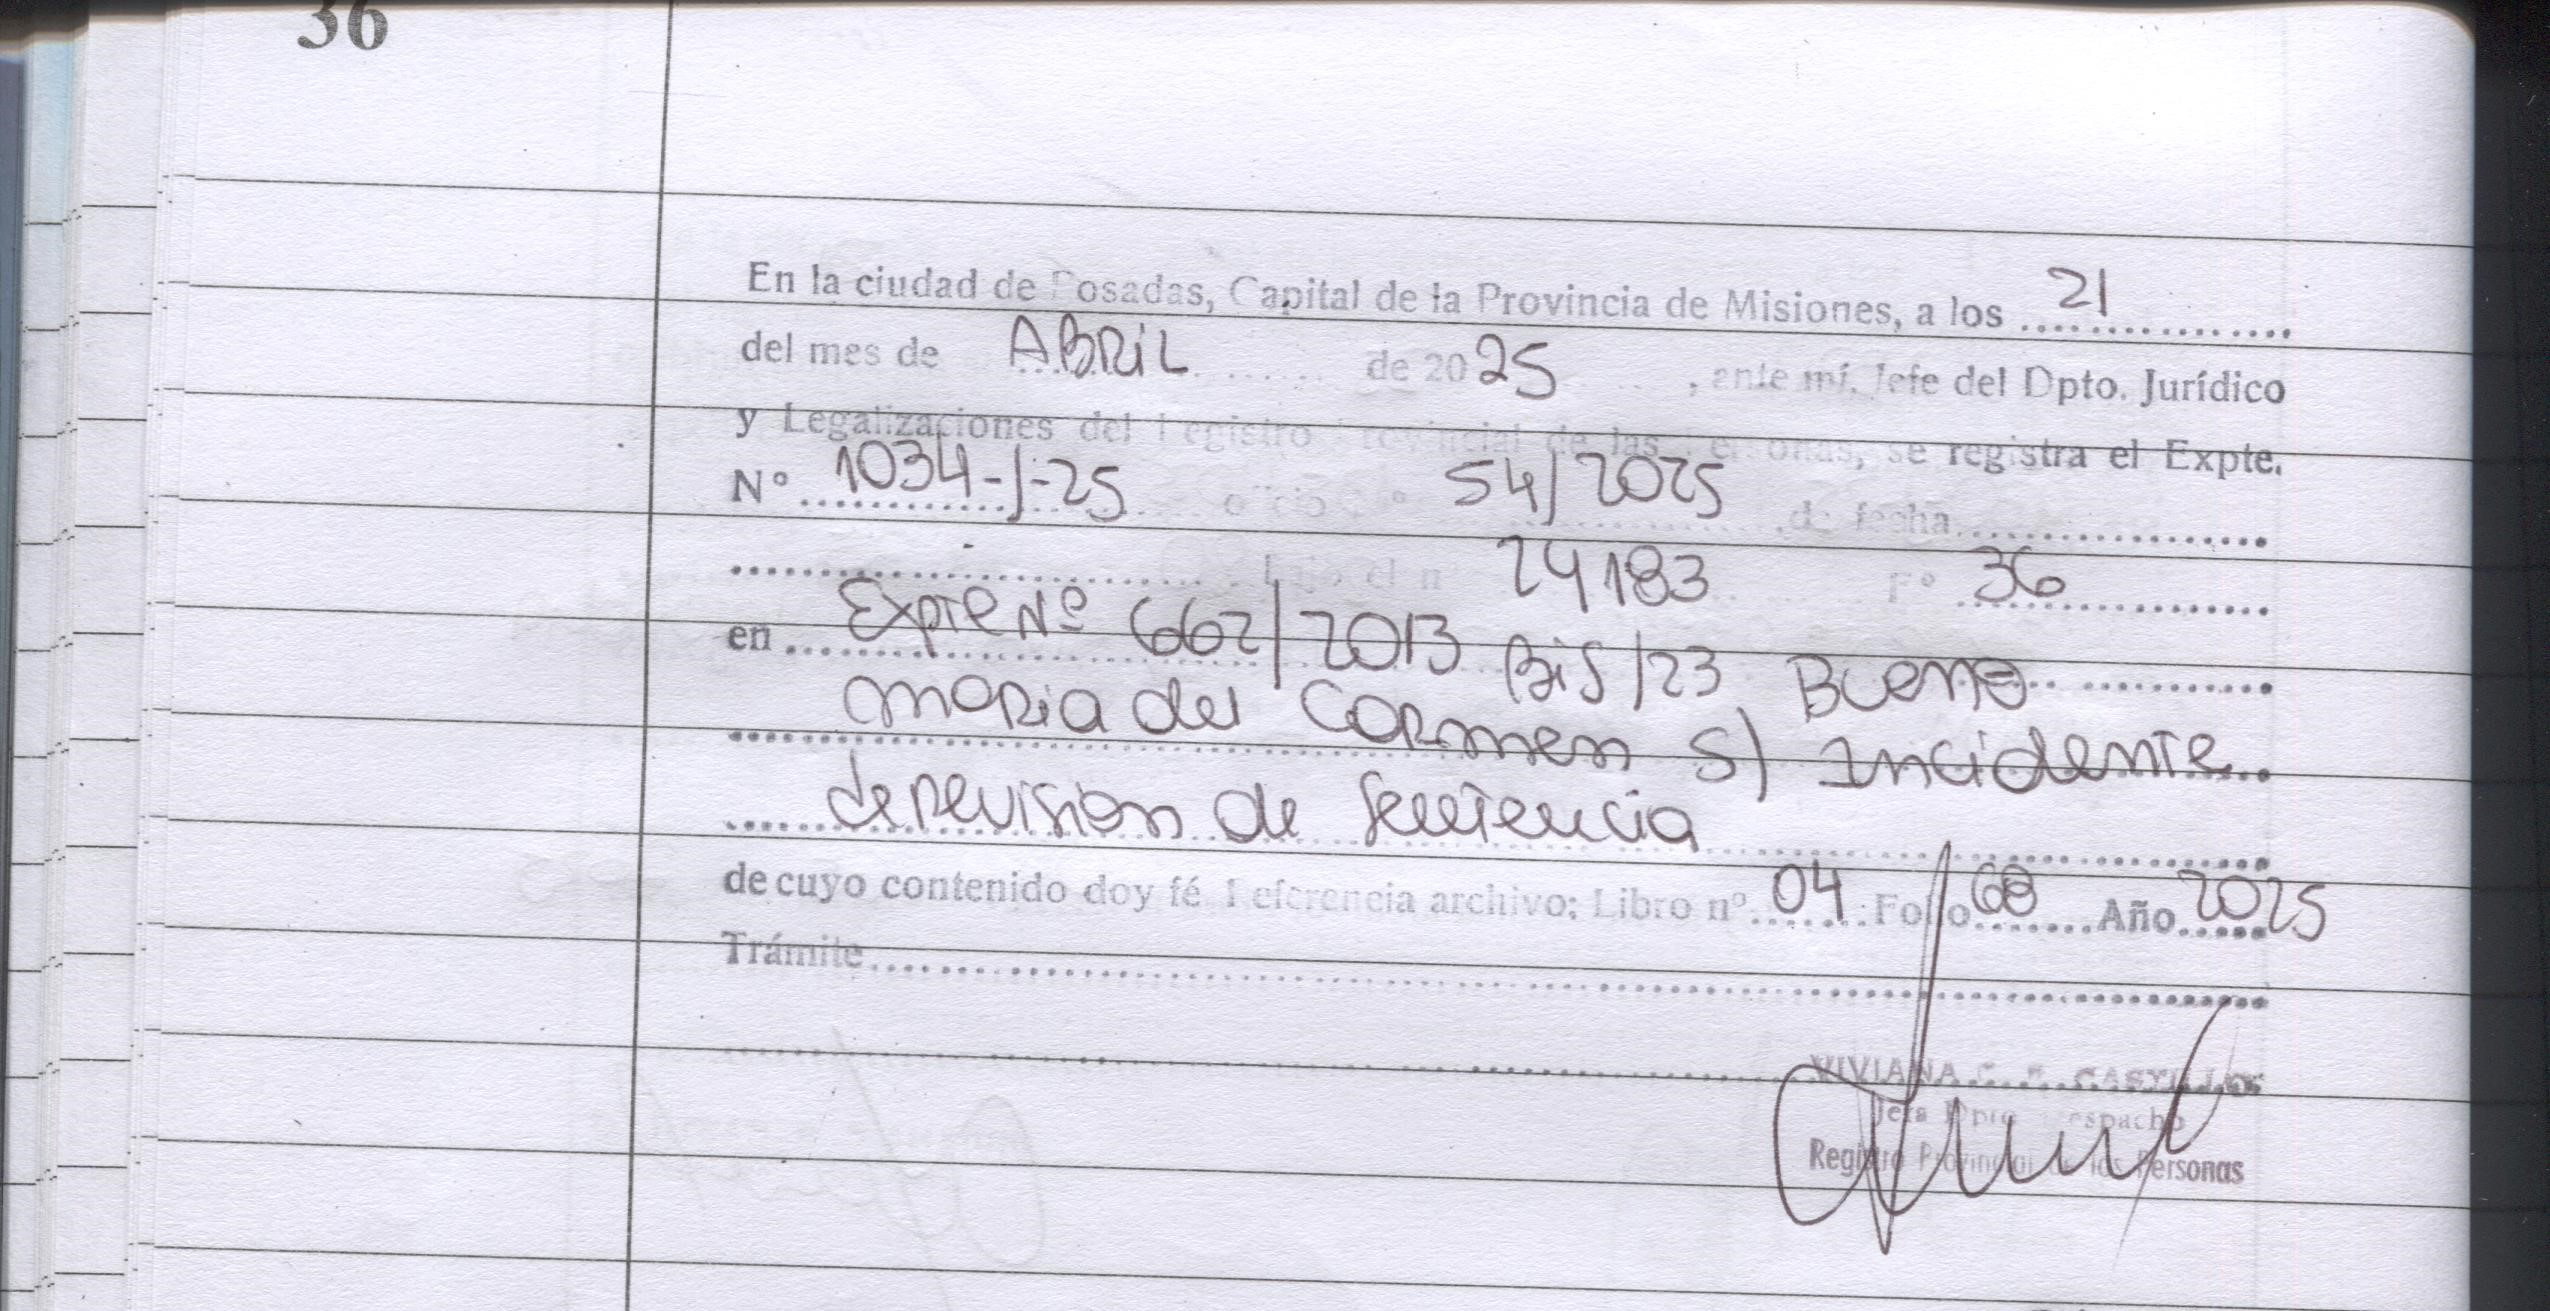 36
En la ciudad de Posadas, Capital de la Provincia de Misiones, a los 21
del mes de ABRIL de 2025, ante mí, Jefe del Dpto. Jurídico
y Legalizaciones del Registro Provincial de las Personas, se registra el Expte.
N° 1034-J-25 oficio N° 54/2025 de fecha
bajo el n° 24183 F° 36
en Expte Nº 662/2013 Bis/23 Bueno
Maria del Carmen S/ Incidente
de revision de Sentencia
de cuyo contenido doy fé Referencia archivo: Libro n° 04 Folio 68 Año 2025
Trámite
VIVIANA CASTILLO
Jefa Dpto Despacho
Registro Provincial de las Personas